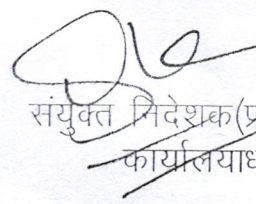 संयुक्त निदेशक(प्र
कार्यालयाध